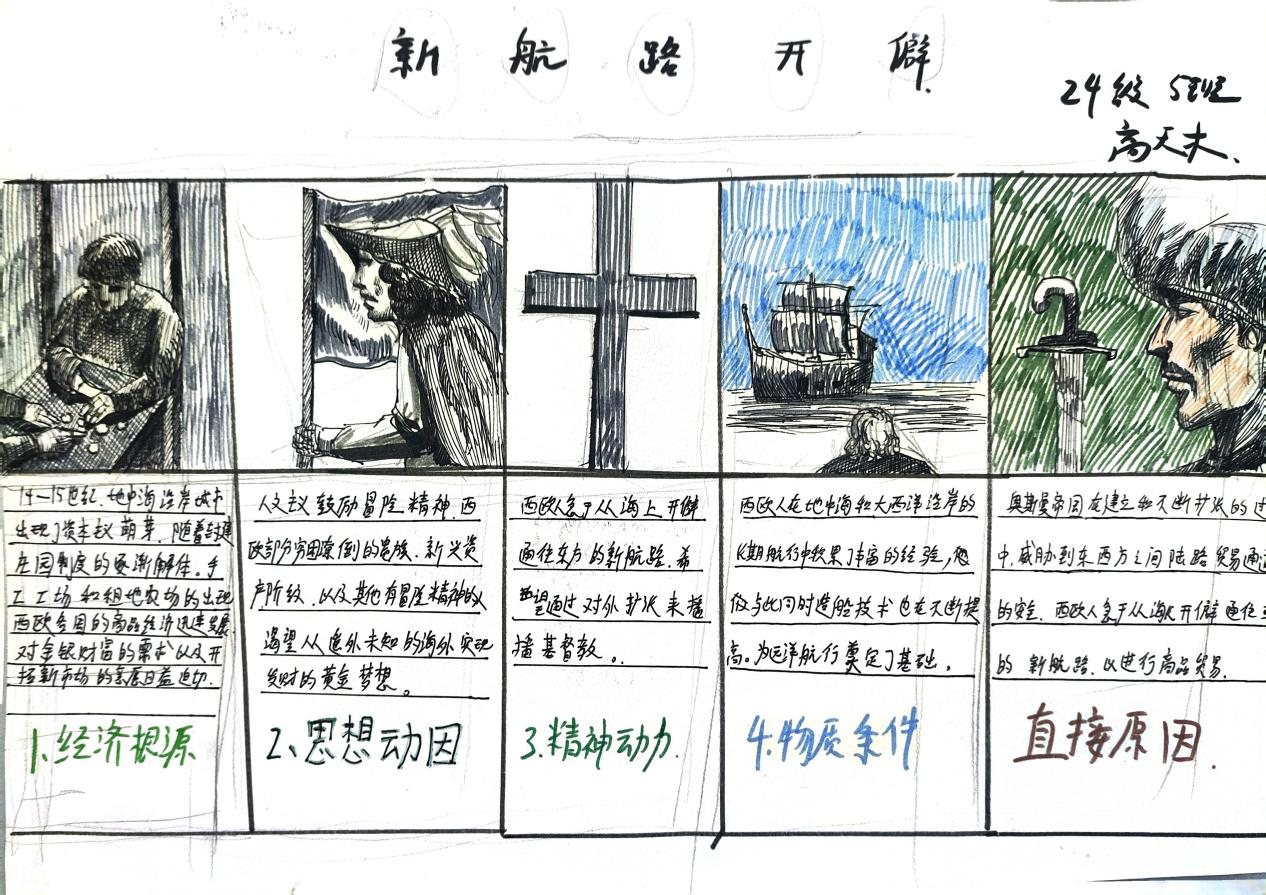 新航路开僻.
24级 5班
高天夫、
14—15世纪.地中海沿岸城市
出现了资本主义萌芽.随着封建
庄园制度的逐渐解体。手
工工场和租地农场的出现
西欧各国的商品经济迅速发展
对金银财富的需求以及开
拓新市场的意愿日益迫切.
1、经济根源
人文主义鼓励冒险精神.西
欧部分穷困潦倒的贵族、新兴资
产阶级.以及其他有冒险精神的人
渴望从遥外未知的海外实现
发财的黄金梦想。
2、思想动因
西欧人急于从海上开僻
通往东方的新航路.希
望通过对外扩张来播
播基督教。
3.精神动力.
西欧人在地中海和大西洋沿岸的
长期航行中收累了丰富的经验,
与此同时造船技术也在不断提
高。为远洋航行奠定了基础。
4.物质条件
奥斯曼帝国在建立和不断扩张的过
中.威胁到东西方之间陆路贸易通道
的安全.西欧人急于从海上开僻通往
的新航路.以进行商品贸易.
直接原因.